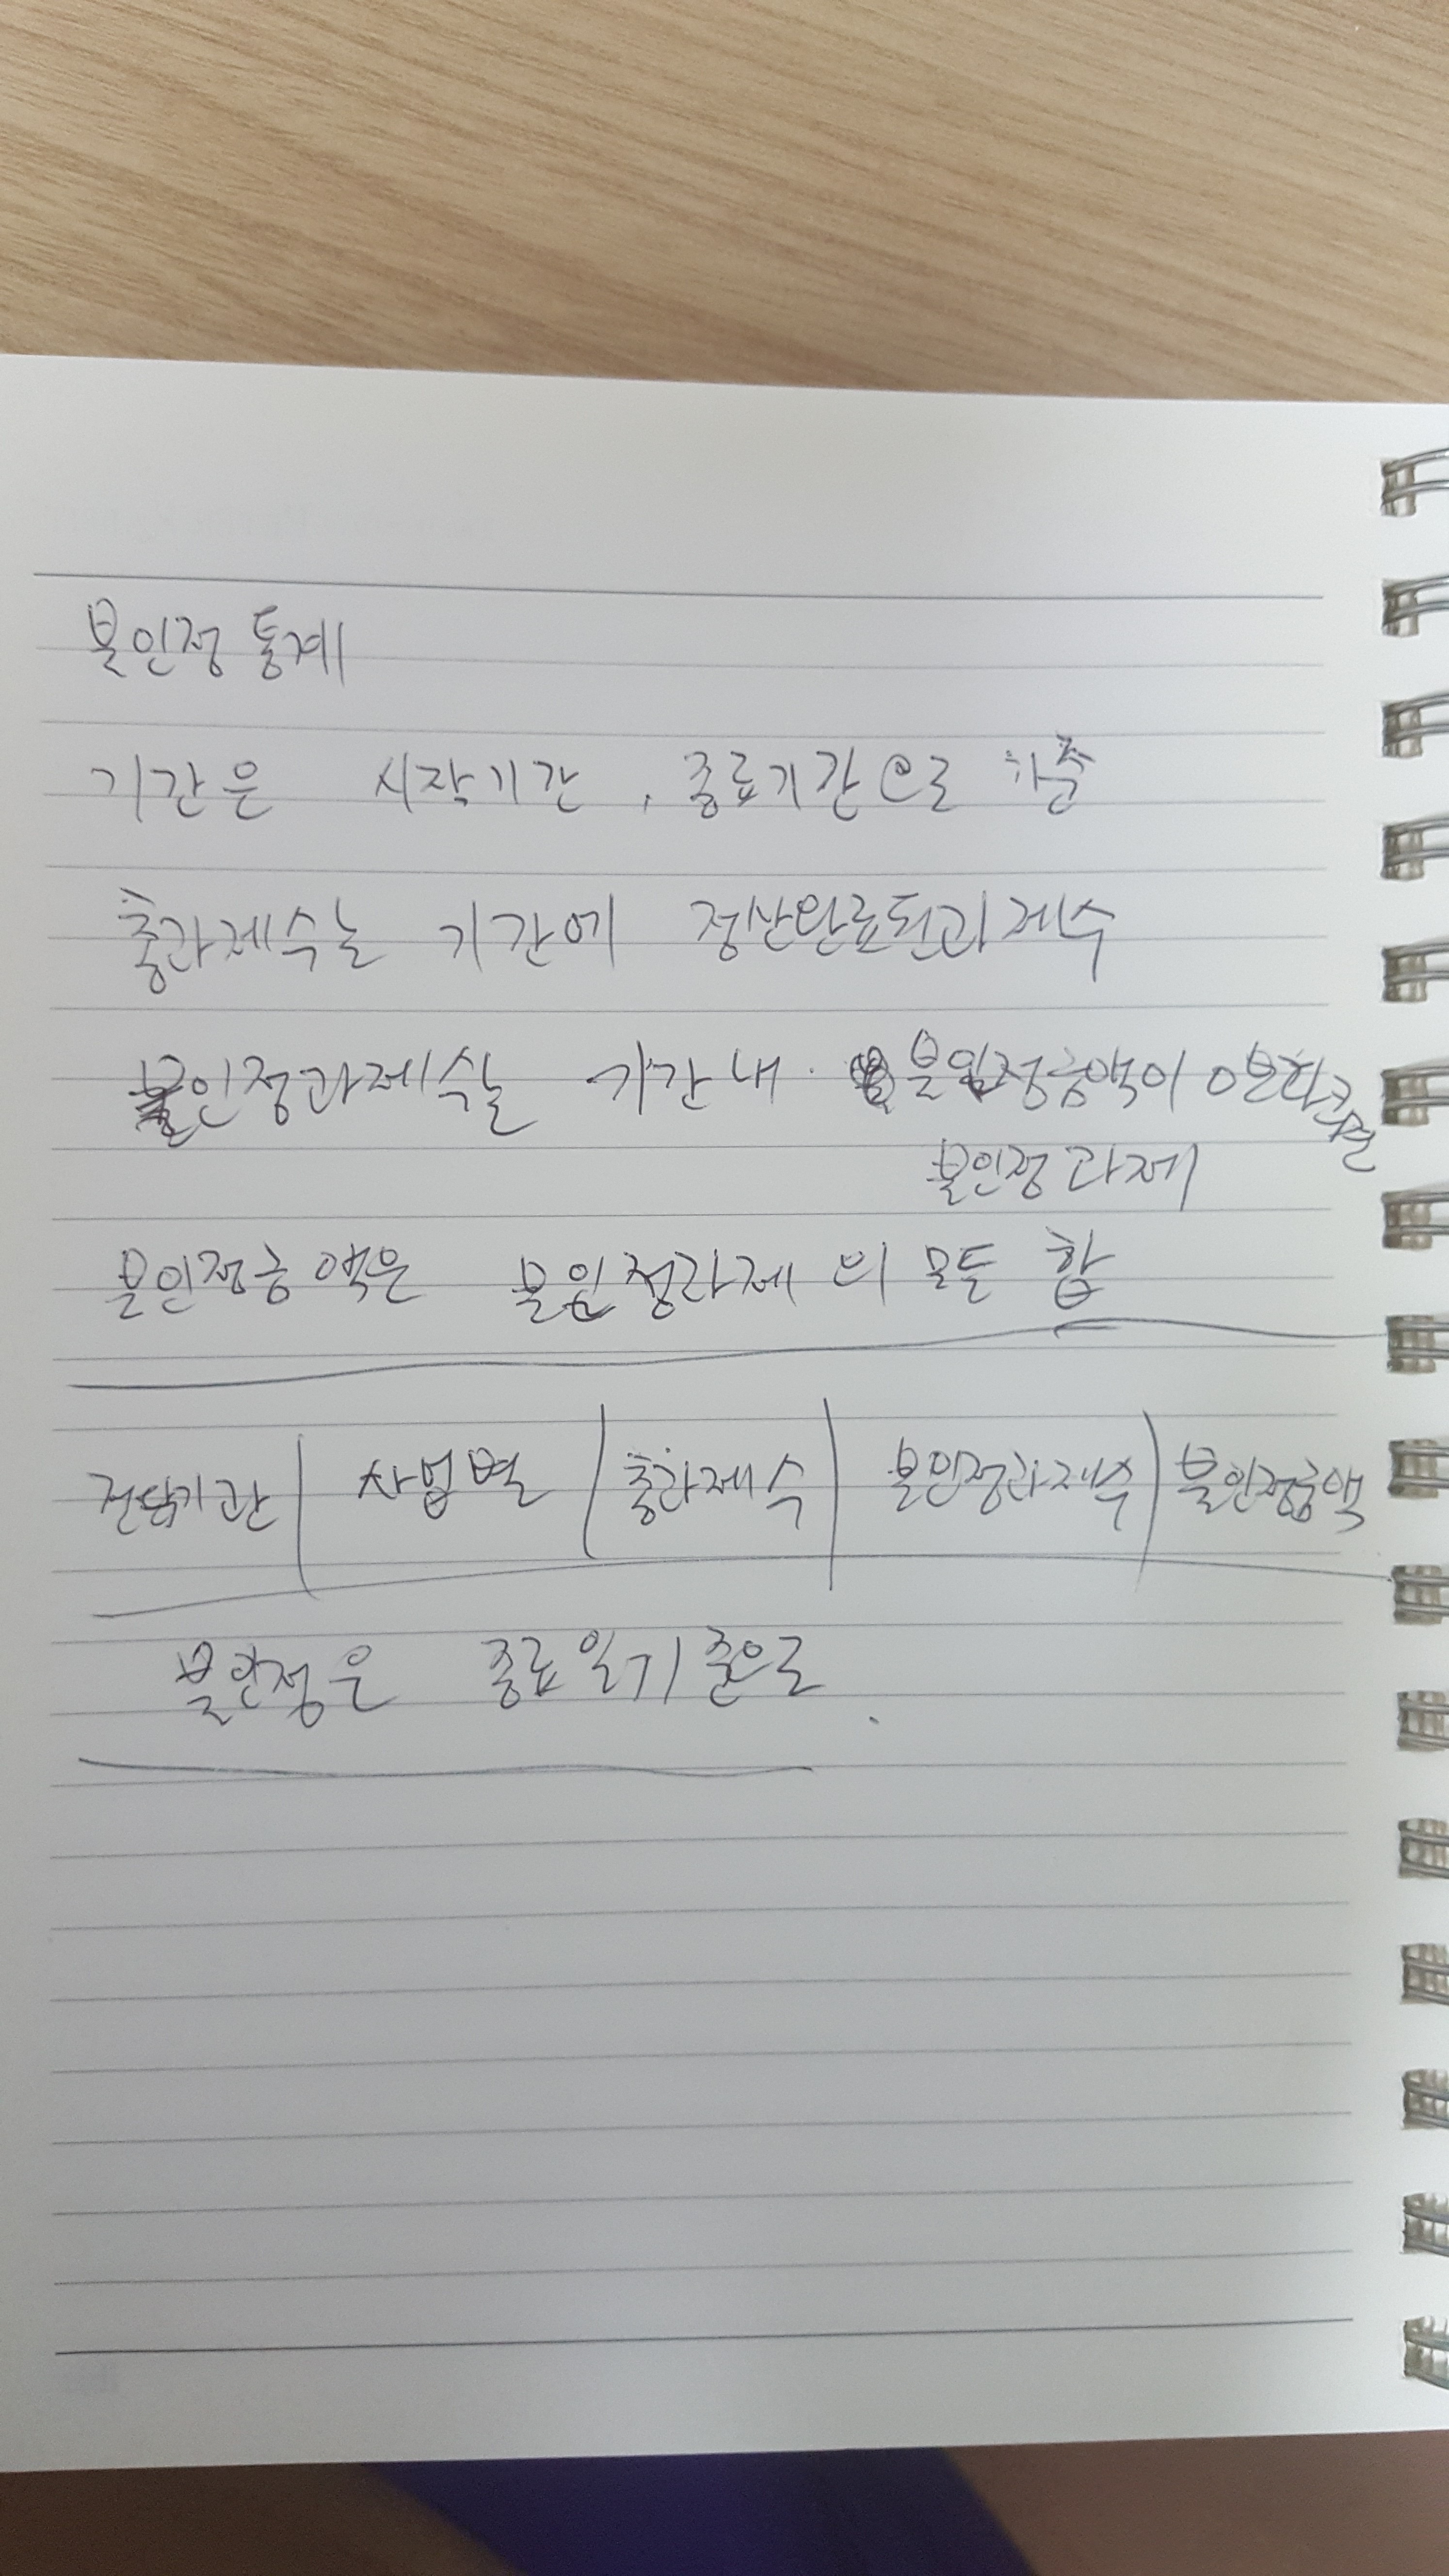 불인정 통계
기간은 시작기간, 종료기간으로 기준
총과제수는 기간에 정산완료된과제수
불인정과제수는 기간내 불인정금액이 0보다크면
불인정 과제
불인정금액은 불인정과제의 모든 합
전담기관 | 사업별 | 총과제수 | 불인정과제수 | 불인정금액
불인정은 종료일기준으로.